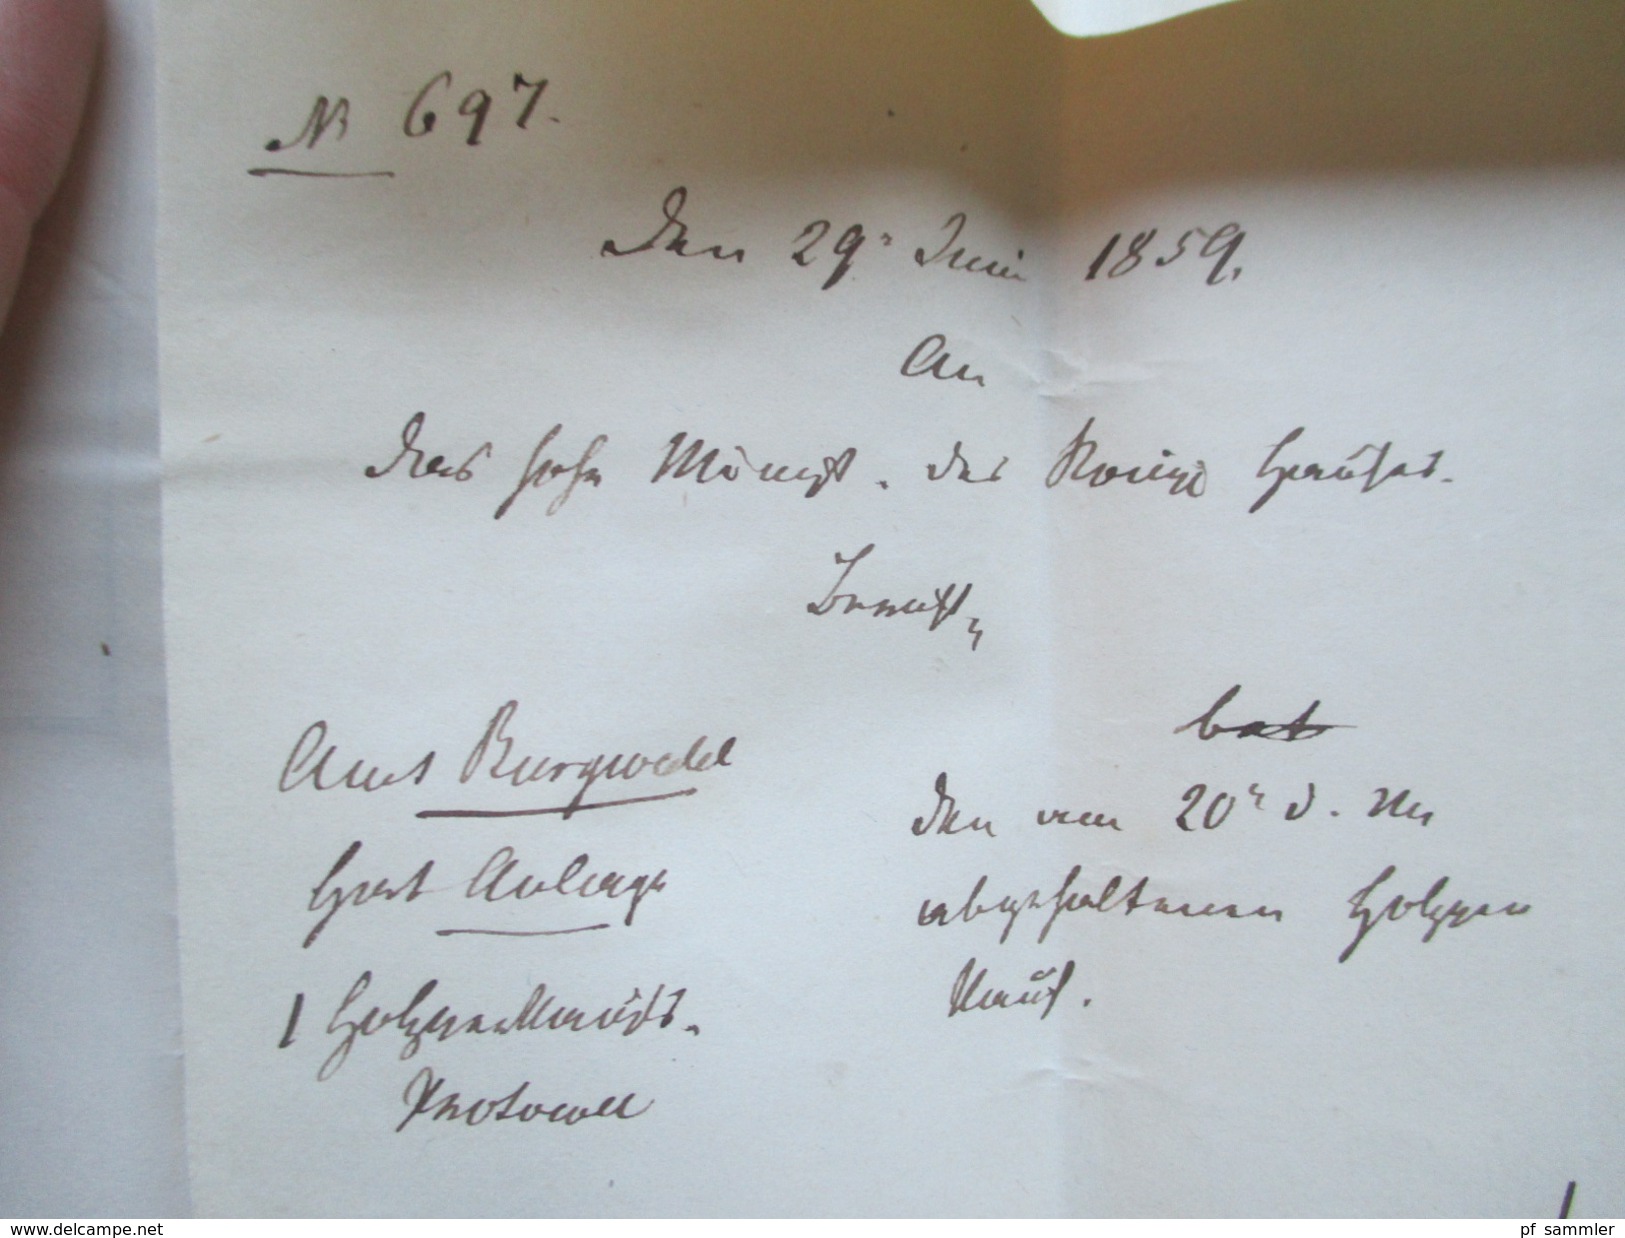 № 697.
Den 29ⁿ Juni 1859.
An
das hohe Minist. des Königl Hauses.
Bericht,
Amt Burgwedel
Hat Anlage
1 Holzverkaufs-
Protocoll
bet
den am 20ⁿ d. M.
abgehaltenen Holzver
kauf.
www.delcampe.net
pf_sammler